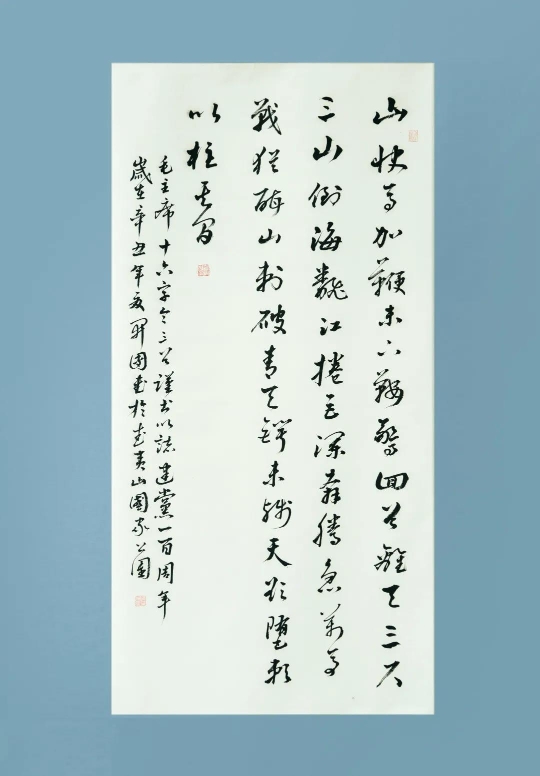 山快马加鞭未下鞍驚回首離天三尺
三山倒海飜江捲巨瀾奔騰急萬马
戰猶酣山刺破青天鍔未殘天欲墮賴
以柱其間
毛主席十六字令三首謹书以誌建黨一百周年
歲在辛丑年夏國武於武夷山國家公園